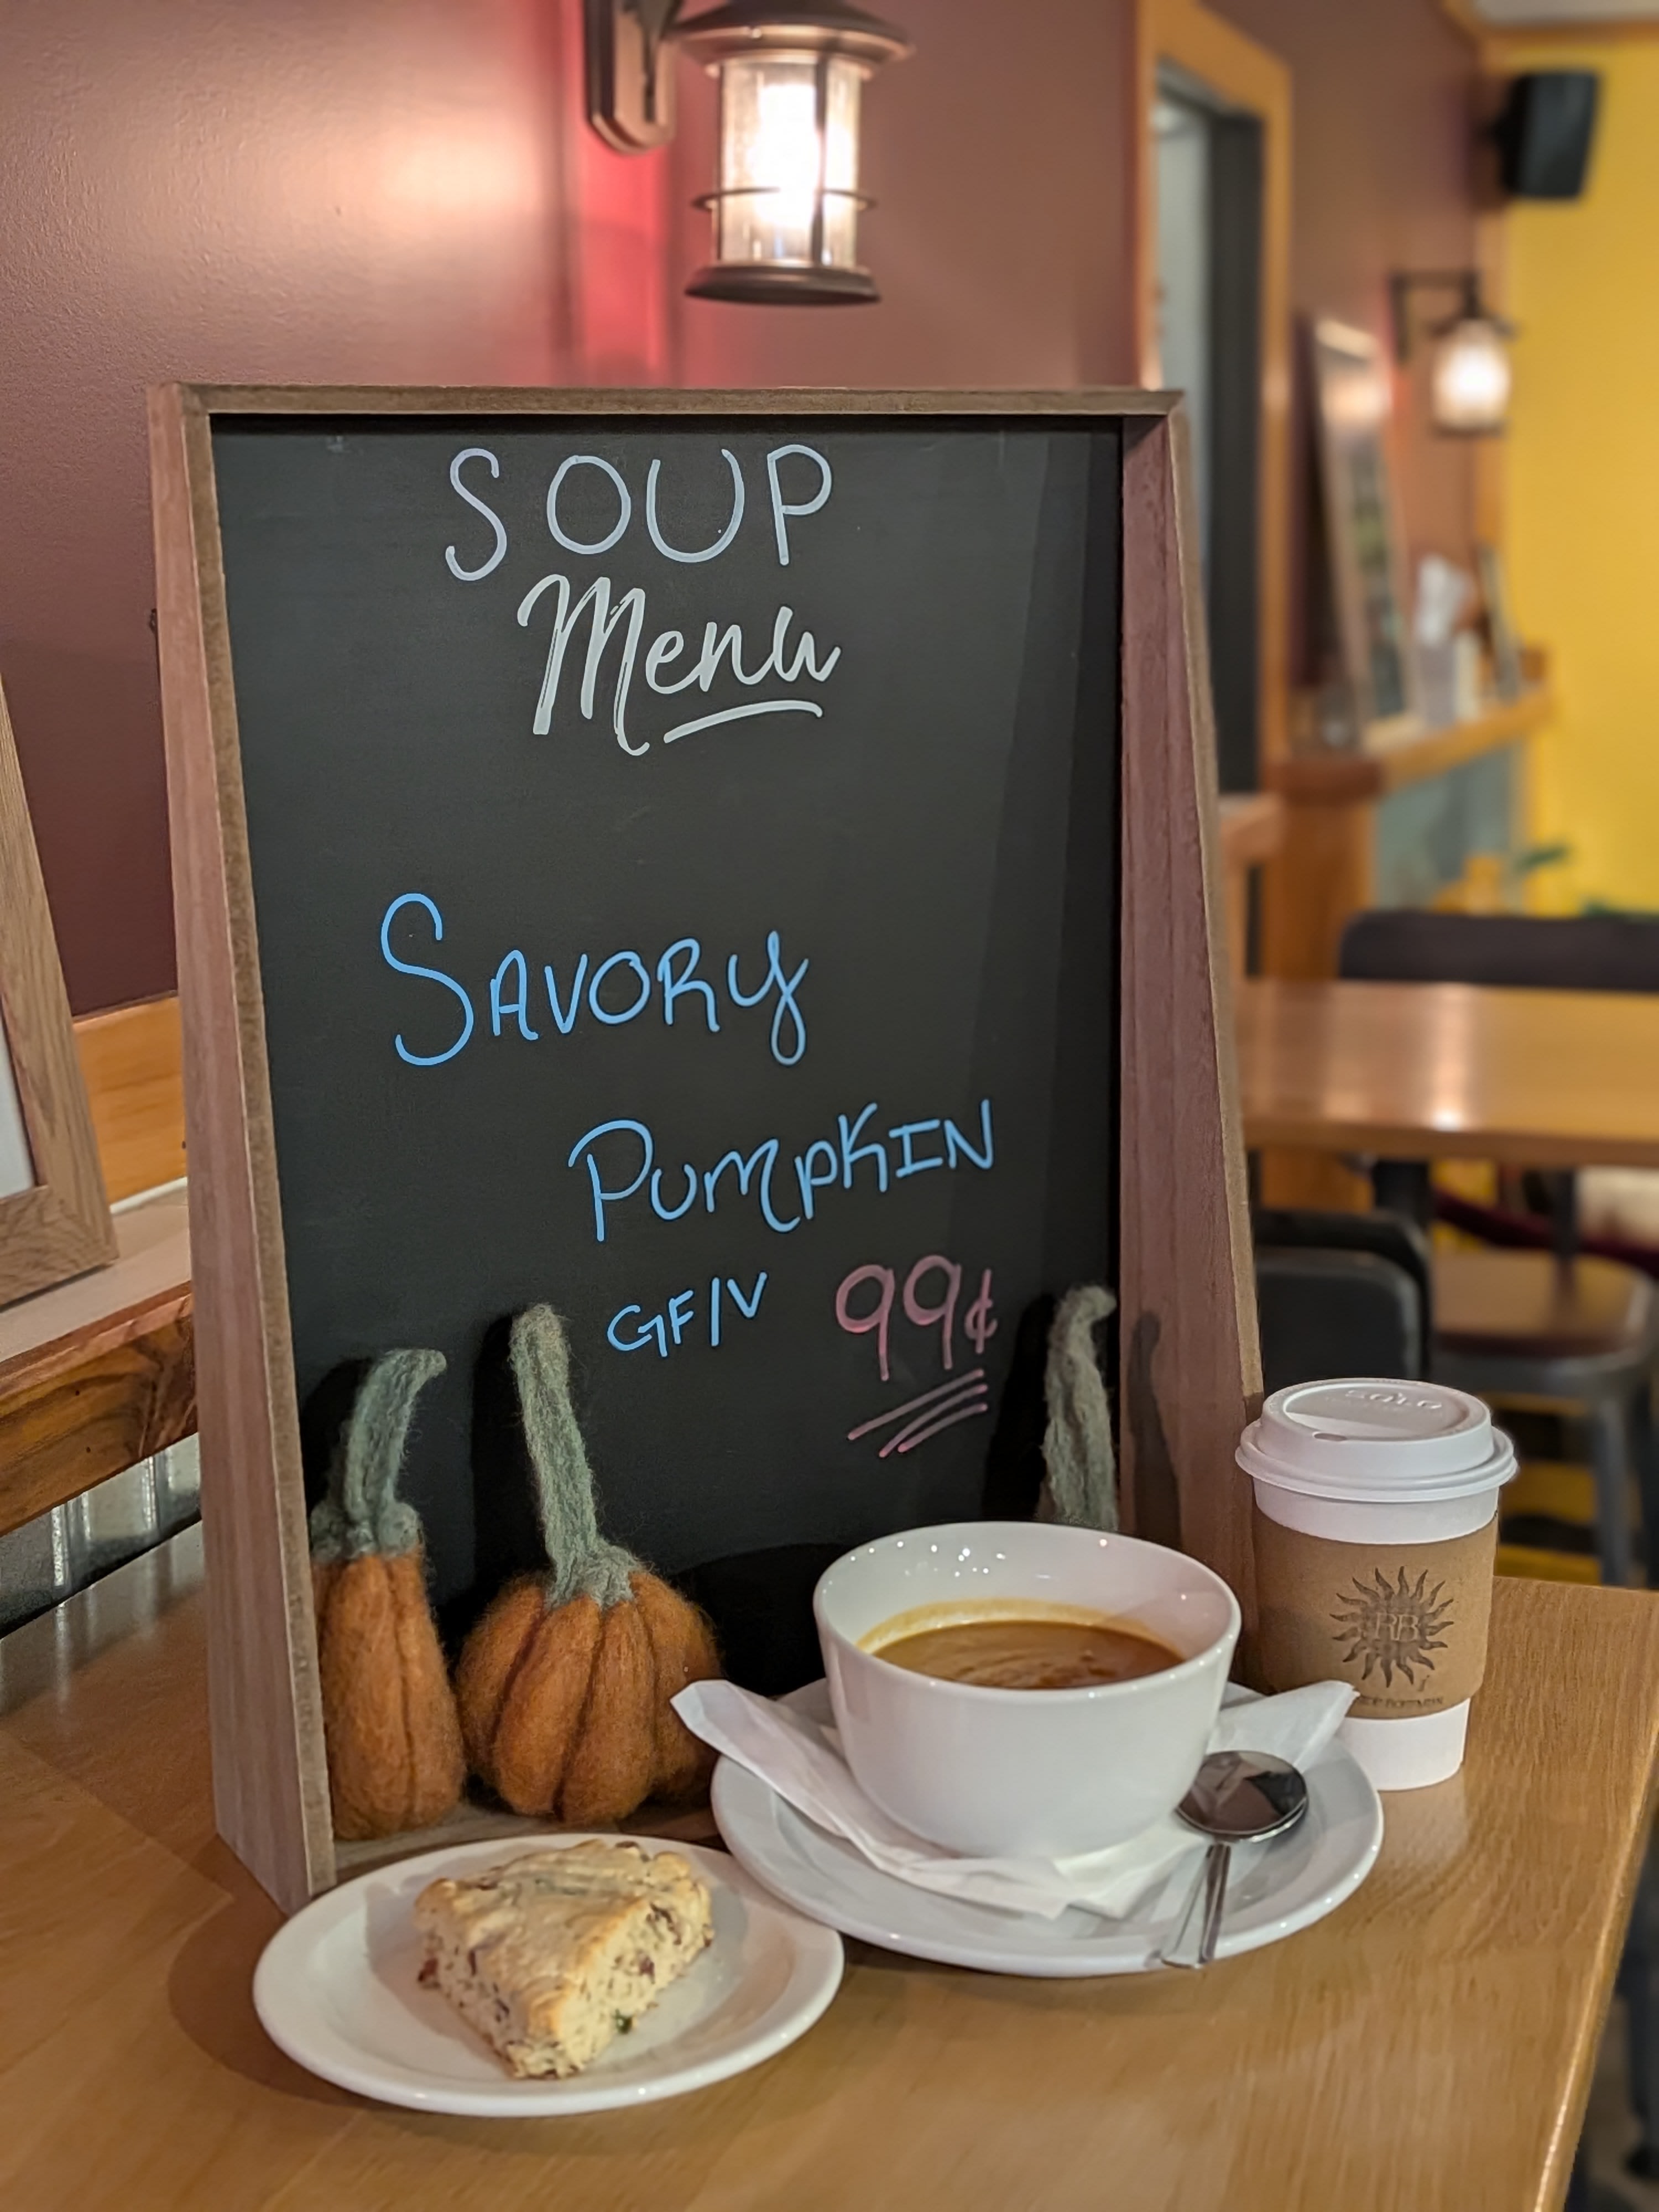 SOUP
Menu
SAVORY
PUMPKIN
GF/V 99¢
SOLO
RB